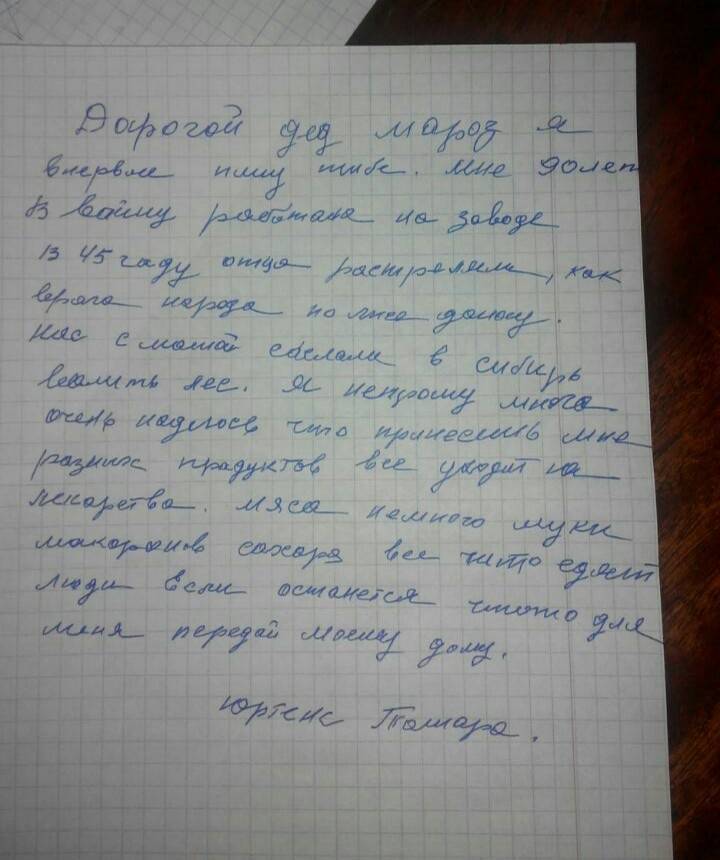 Дорогой дед мароз я
впервые пишу тибе. Мне 90 лет
В войну работала на заводе
В 45 гаду отца растреляли, как
врага народа по лжа доносу.
Нас с мамой сослали в сибирь
валить лес. Я непрошу многа
очень надеюсь что принесешь мне
разных продуктов все уходит на
лекарства. мяса немного муки
макоронов сахара все что едят
люди если останется чтото для
меня передай моему дому.
Юргенс Тамара.